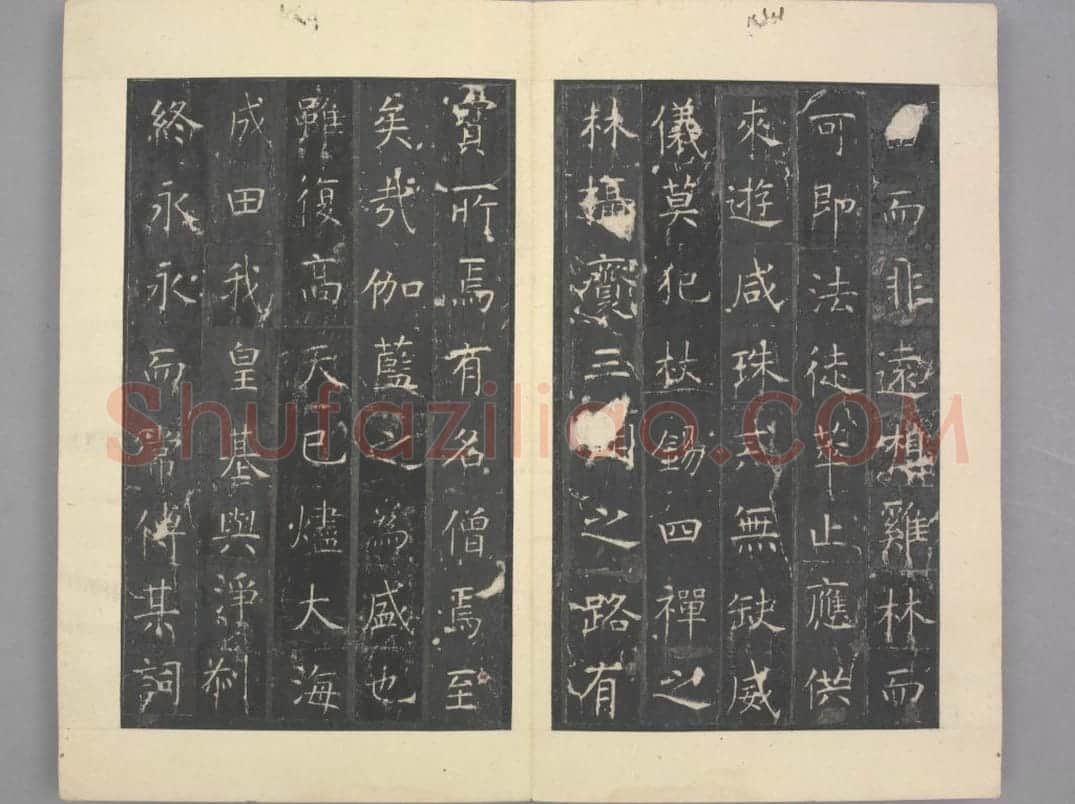 而非遠想雞林而
可即法徒萃止應供
來遊咸珠戒無缺威
儀莫犯杖錫四禪之
林攝齋三明之路有
賓所焉有名僧焉至
矣哉伽藍之為盛也
雖復高天已燼大海
成田我皇基與淨剎
終永永而常傳其詞
Shufaziliao.COM